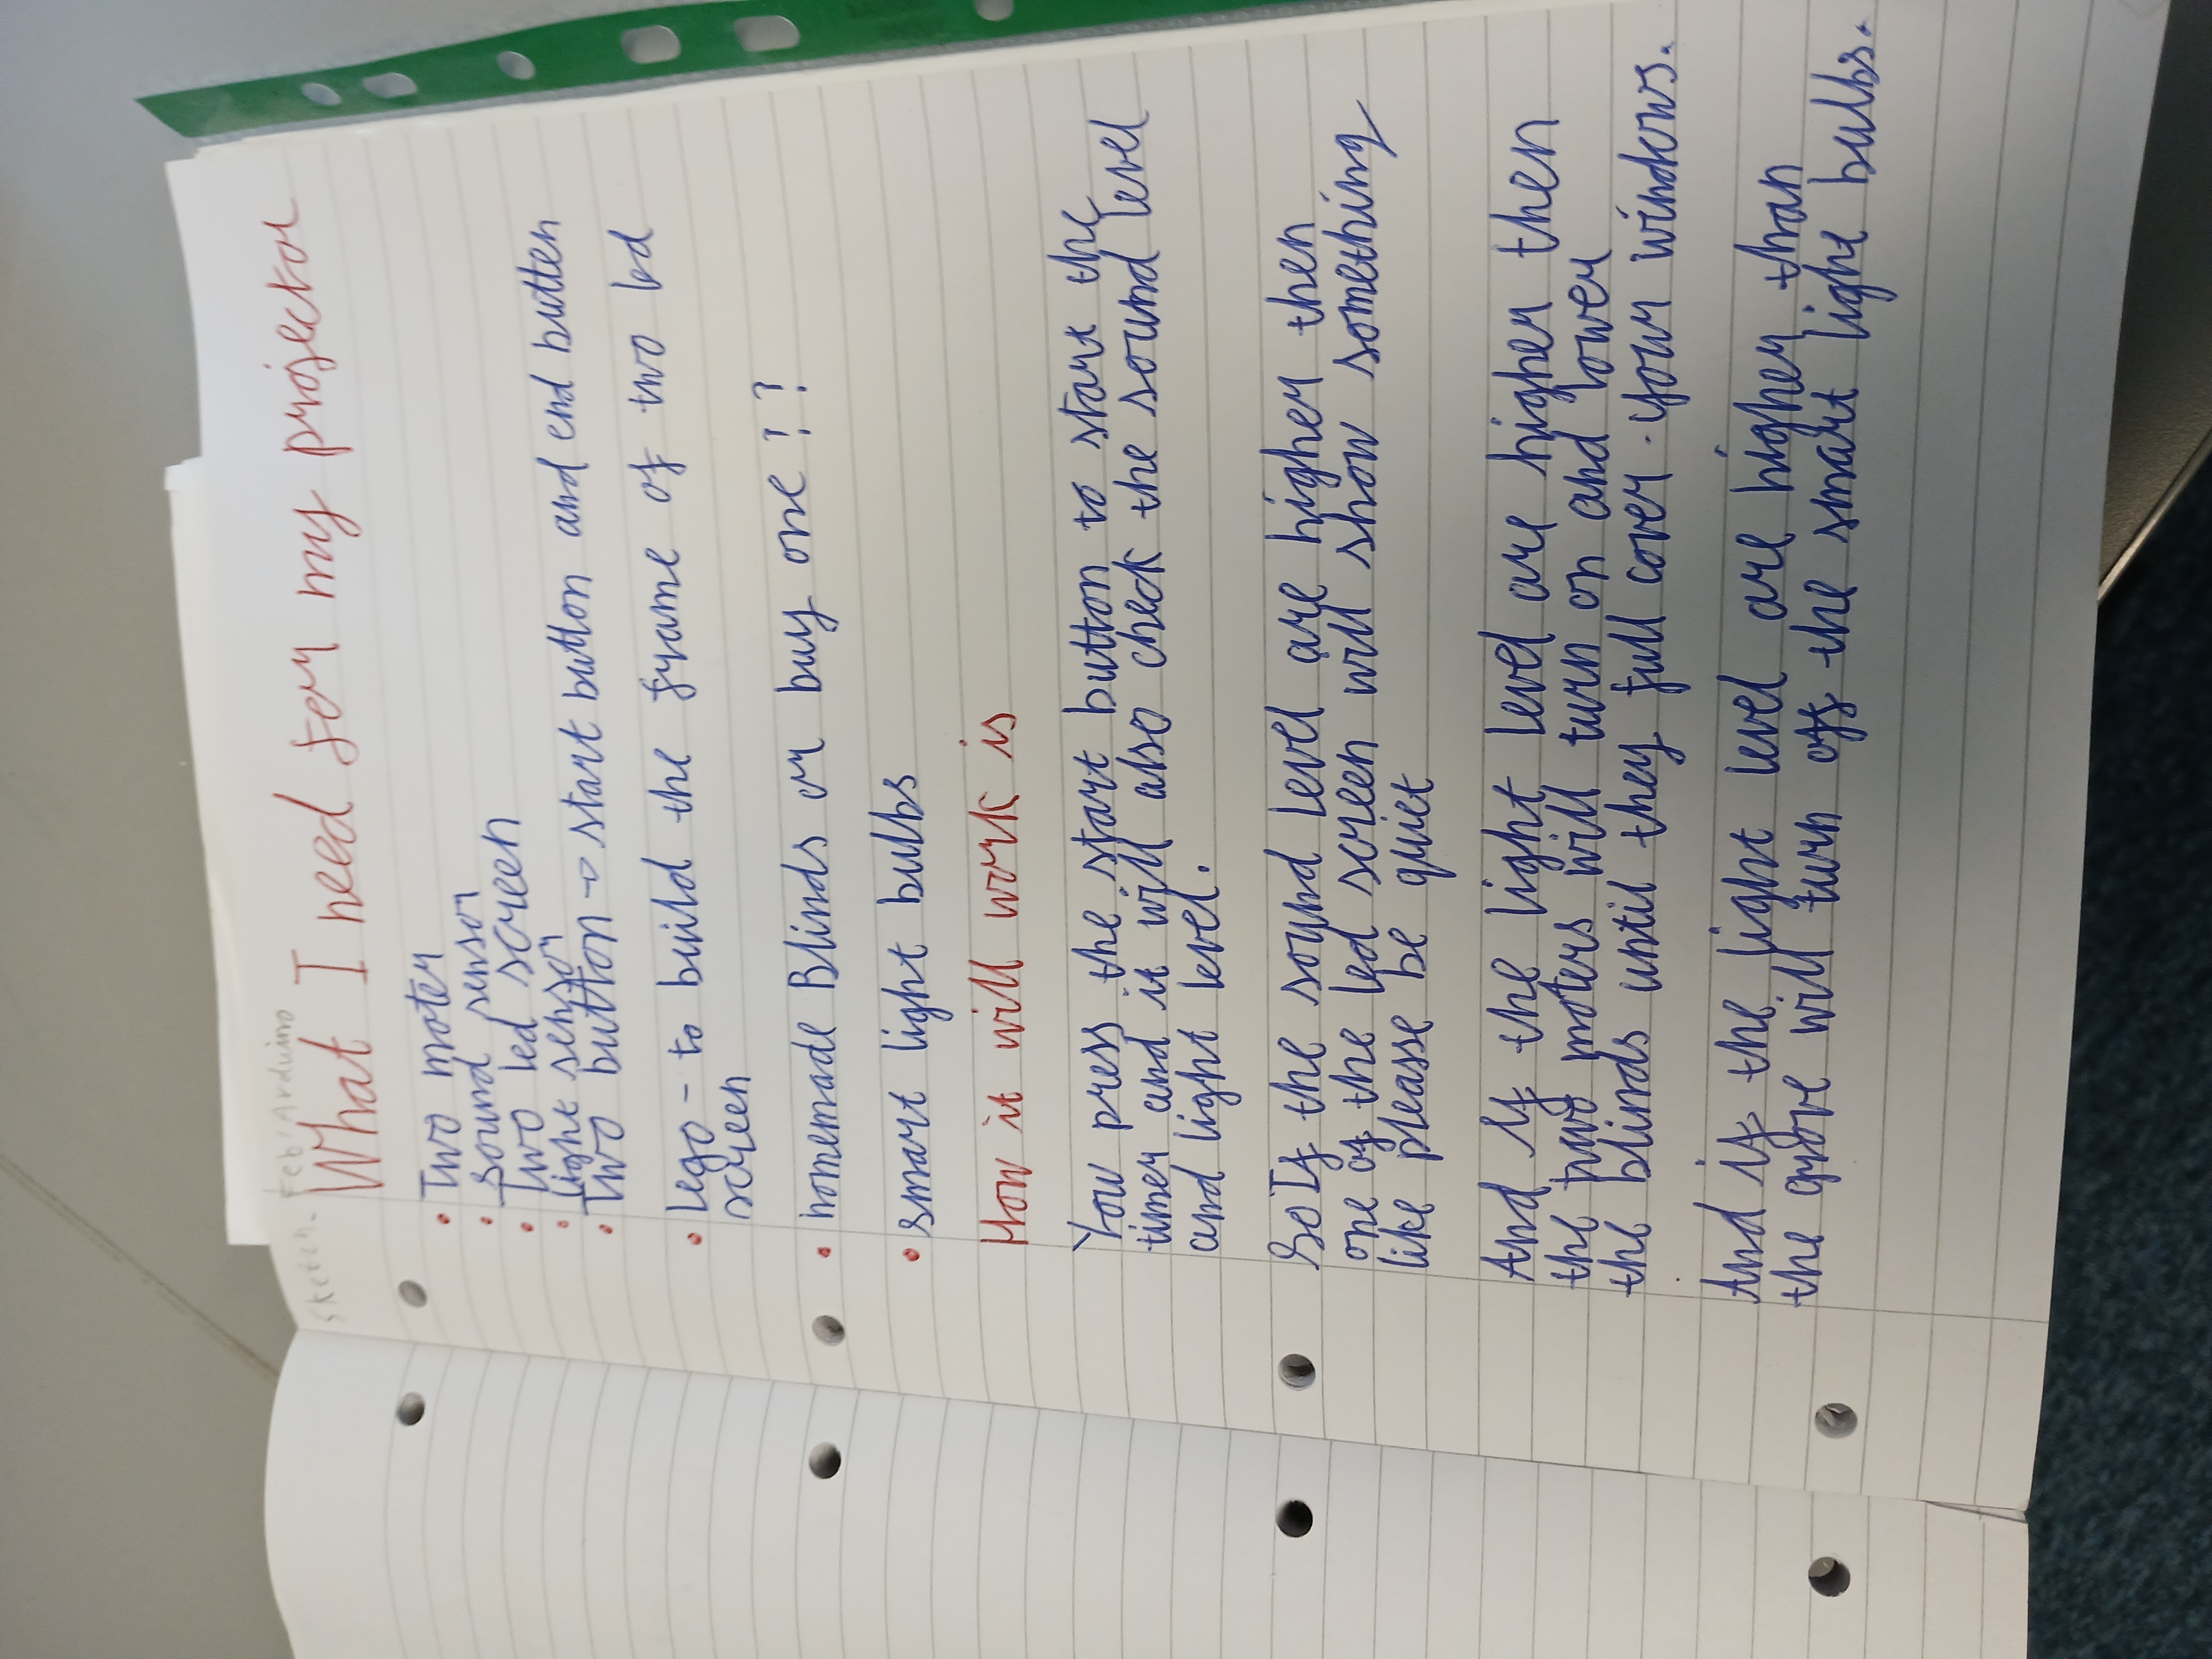 sketch- Feb' Arduino
What I need for my projector
• Two moter
• sound sensor
• Two led screen
• light sensor
• Two button → start button and end butten
• lego - to build the frame of two led
screen
• homemade Blinds or buy one ??
• smart light bulbs
How it will work is
You press the start button to start the
timer and it will also check the sound level
and light level.
So If the sound level are higher then
one of the led screen will show something
like pleasse be quiet
And If the light level are higher then
the two moters will turn on and lower
the blinds until they full cover your windows.
And if the light level are higher than
the grove will turn off the smart light bulbs.